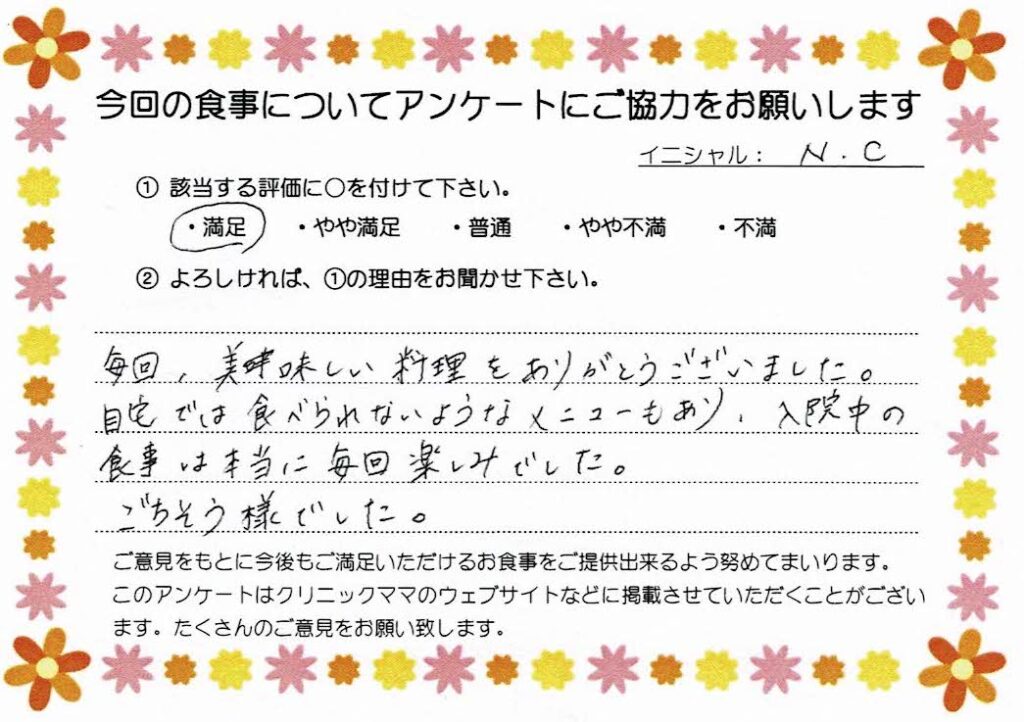 今回の食事についてアンケートにご協力をお願いします
イニシャル： N.C
① 該当する評価に○を付けて下さい。
・満足 ・やや満足 ・普通 ・やや不満 ・不満
② よろしければ、①の理由をお聞かせ下さい。
毎回、美味しい料理をありがとうございました。
自宅では食べられないようなメニューもあり、入院中の
食事は本当に毎回楽しみでした。
ごちそう様でした。
ご意見をもとに今後もご満足いただけるお食事をご提供出来るよう努めてまいります。
このアンケートはクリニックママのウェブサイトなどに掲載させていただくことがござい
ます。たくさんのご意見をお願い致します。